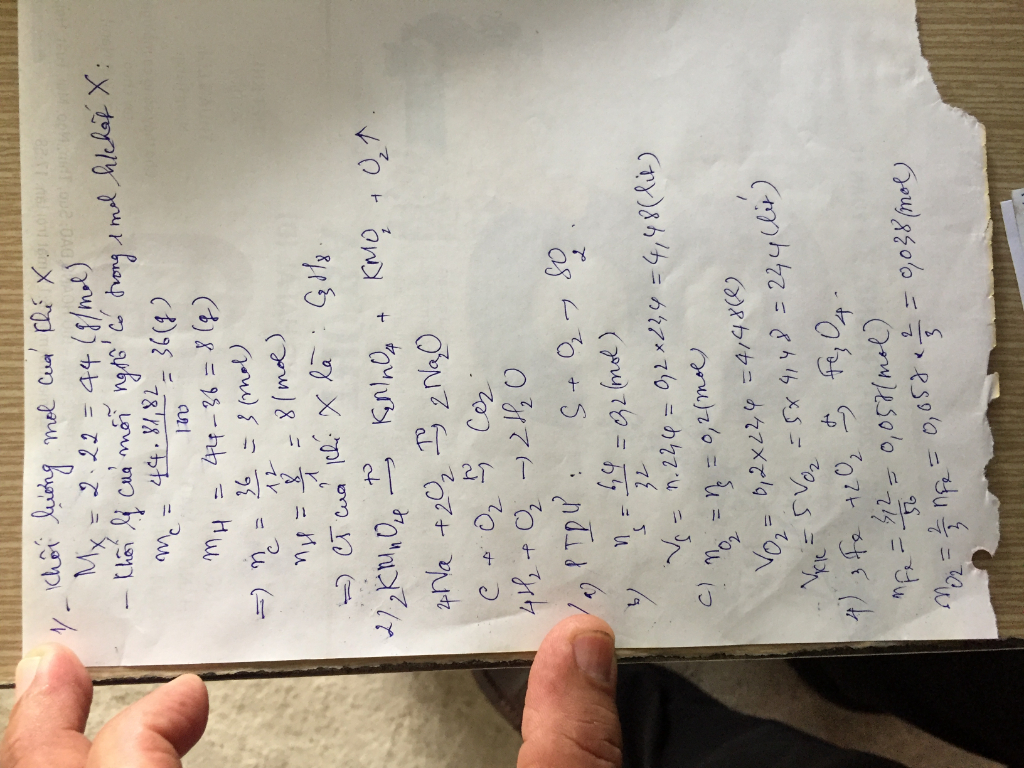 1/ - Khối lượng mol của khí X
Mx = 2.22 = 44 (g/mol)
- Khối lg của mỗi ngtố có trong 1 mol h/chất X:
mC = 44.81,82 / 100 = 36 (g)
mH = 44 - 36 = 8 (g)
=> nC = 36/12 = 3 (mol)
nH = 8/1 = 8 (mol)
=> CT của khí X là : C3H8.
2/ 2KMnO4 →(t°) K2MnO4 + KMO2 + O2↑.
4Na + 2O2 →(t°) 2Na2O
C + O2 →(t°) CO2.
4H2 + O2 → 2H2O
/ a) PTPƯ : S + O2 → SO2.
b) nS = /32 = 0,2 (mol)
VS = n.22,4 = 0,2 x 22,4 = 4,48 (lít)
c) nO2 = nS = 0,2 (mol)
VO2 = 0,2 x 22,4 = 4,48 (l)
Vkk = 5VO2 = 5 x 4,48 = 22,4 (lít)
4) 3Fe + 2O2 →(t°) Fe3O4.
nFe = 3,2/56 = 0,057 (mol)
nO2 = 2/3 nFe = 0,057 x 2/3 = 0,038 (mol)